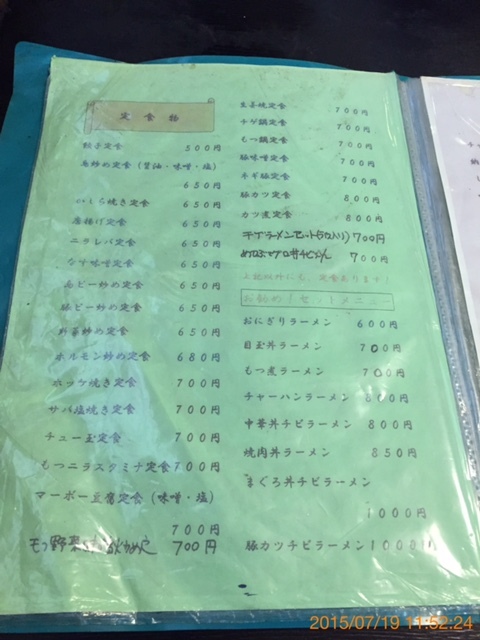 定食物
餃子定食 500円
鳥炒め定食（醤油・味噌・塩）
650円
いくら焼き定食 650円
唐揚げ定食 650円
ニラレバ定食 650円
なす味噌定食 650円
鳥ピー炒め定食 650円
豚ピー炒め定食 650円
野菜炒め定食 650円
ホルモン炒め定食 680円
ホッケ焼き定食 700円
サバ塩焼き定食 700円
チュー玉定食 700円
もつニラスタミナ定食 700円
マーボー豆腐定食（味噌・塩）
700円
モツ野菜 700円
生姜焼定食 700円
チゲ鍋定食 700円
もつ鍋定食 700円
豚味噌定食 700円
ネギ豚定食 700円
豚カツ定食 800円
カツ煮定食 800円
700円
700円
上記以外にも、定食あります！
お勧め！セットメニュー
おにぎりラーメン 600円
目玉丼ラーメン 700円
もつ煮ラーメン 700円
チャーハンラーメン 800円
中華丼チビラーメン 800円
焼肉丼ラーメン 850円
まぐろ丼チビラーメン
1000円
豚カツチビラーメン 1000円
2015/07/19 11:52:24